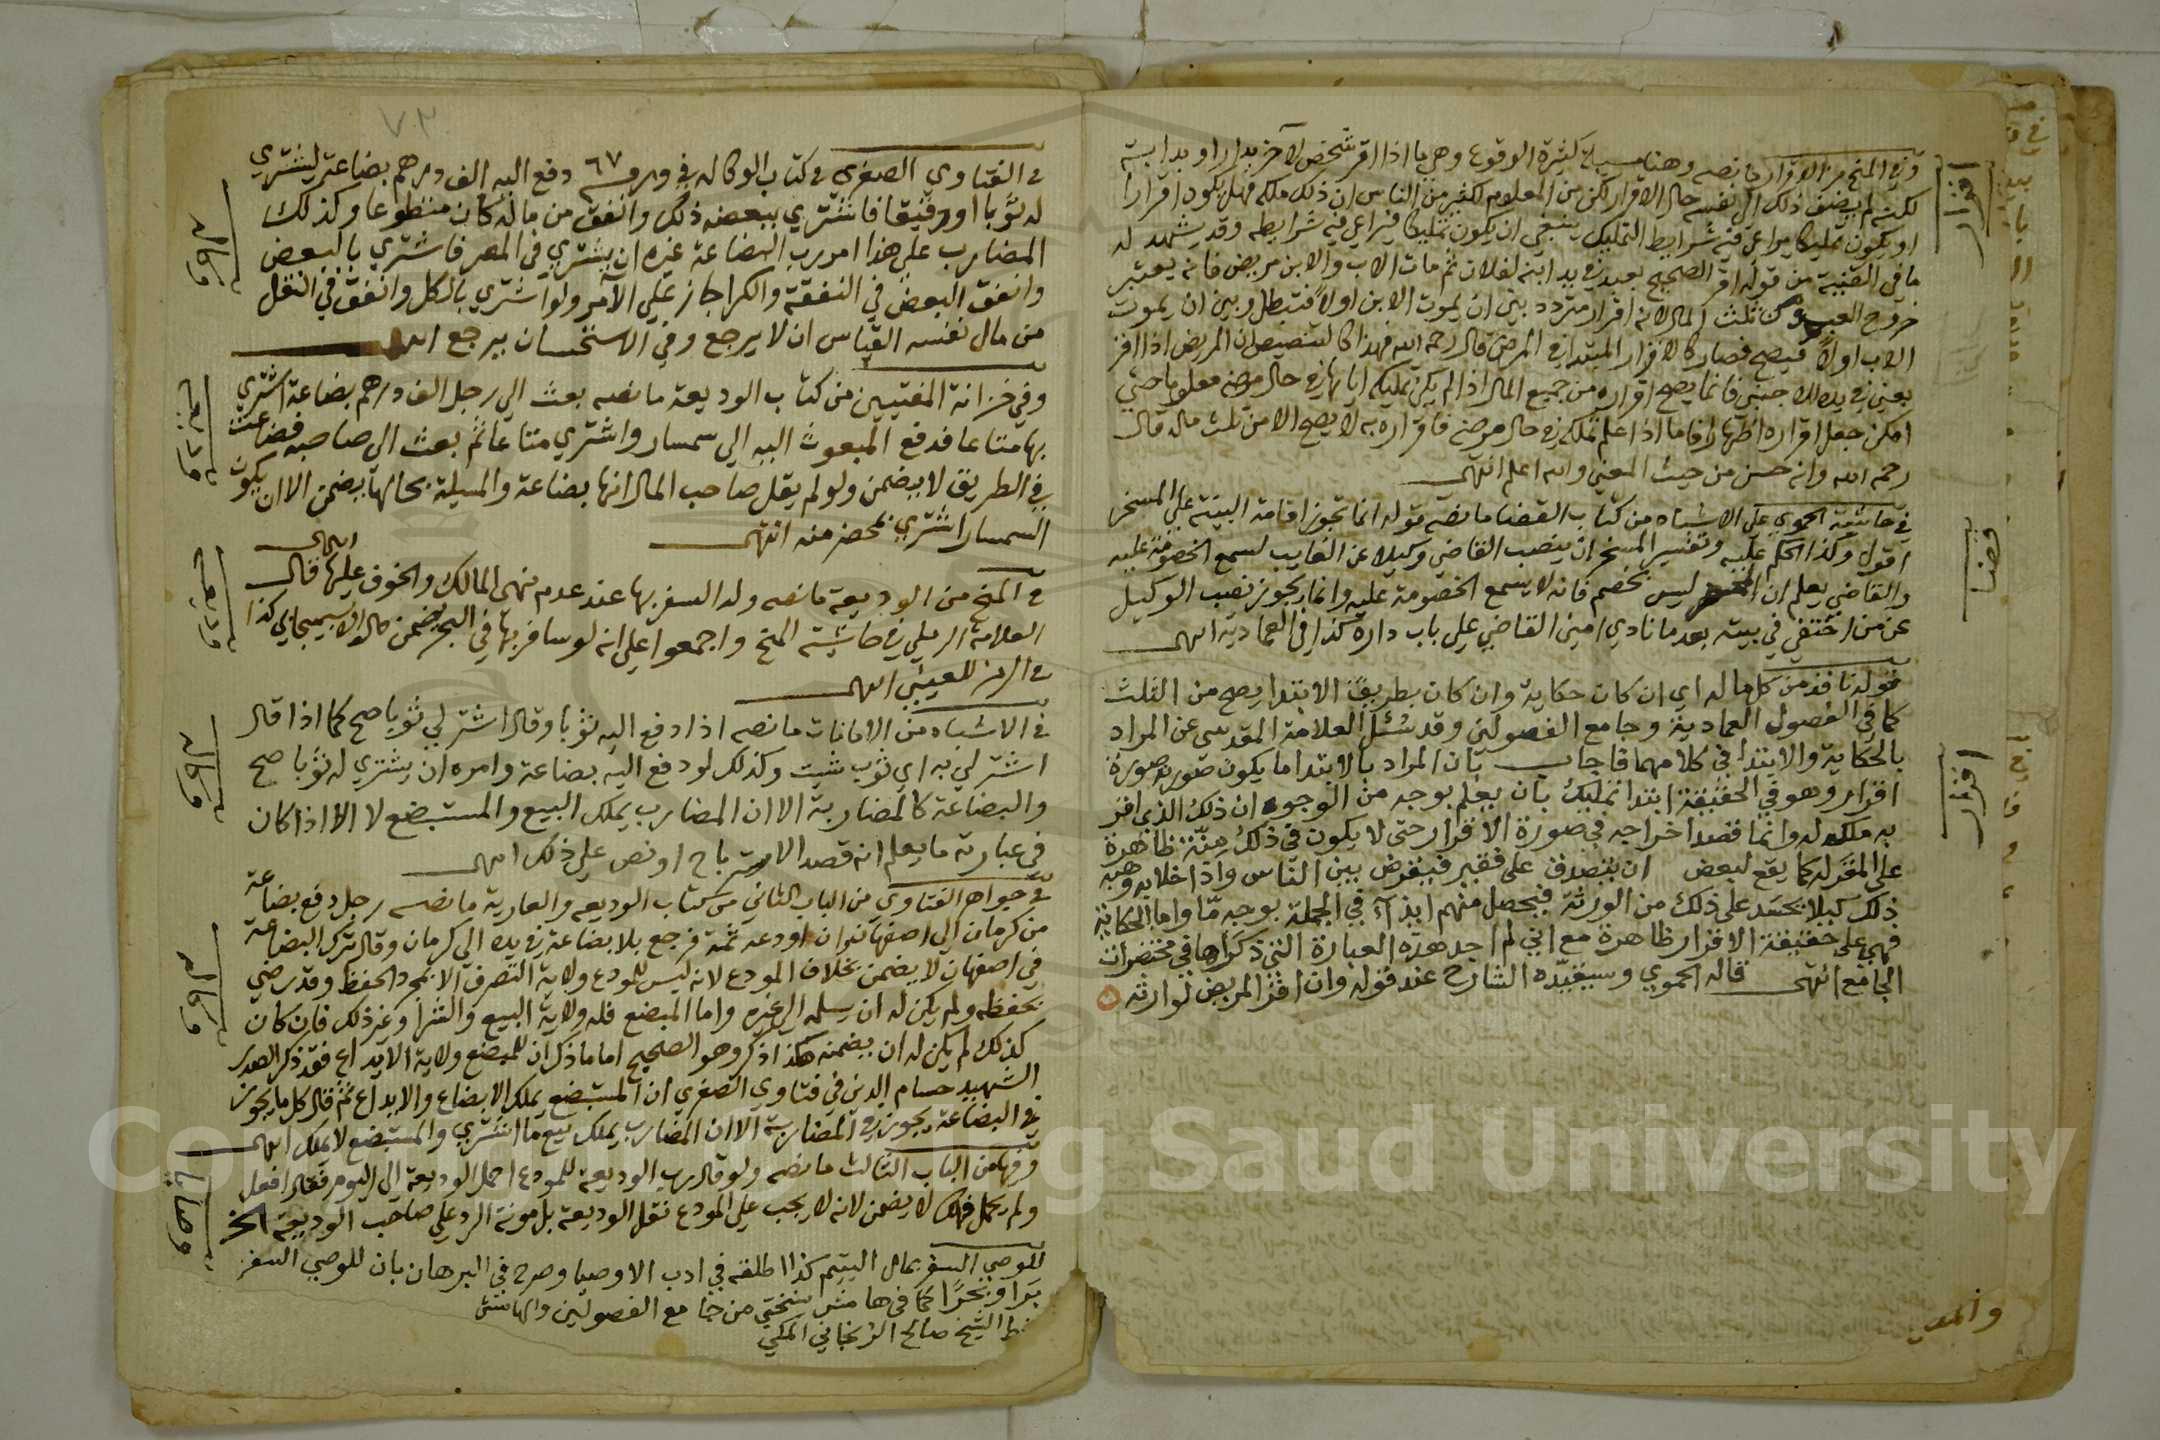 وفي المنح من الاقرار ما نصه وهنا مسيلة كثيرة الوقوع وهي ما اذا اقر شخص لآخر بدار او بدابة
لكنه لم يضف ذلك الى نفسه حال الاقرار لكن من المعلوم لكثير من الناس ان ذلك ملكه فهل يكون اقرارا
او يكون تمليكا يراعى فيه شرايط التمليك ينبغي ان يكون تمليكا فيراعى فيه شرايطه وقد يشهد له
ما في القنية من قوله اقر الصحيح بعبد في يد ابنه لفلان ثم مات الاب والابن مريض فانه يعتبر
خروج العبد من ثلث المال لانه اقرار متردد بين ان يموت الابن اولا فتبطل وبين ان يموت
الاب اولا فيصح فصار كالاقرار المبتدا في المرض قال رحمه الله فهذا كالتنصيص ان المريض اذا اقر
بعين في يده للاجنبي فانما يصح اقراره من جميع المال اذا لم يكن تمليكه اياها في حال مرضه معلوما حتى
امكن جعل اقراره اظهارا فاما اذا علم تملكه في حال مرضه فاقراره به لا يصح الا من ثلث ماله قال
رحمه الله وانه حسن من حيث المعنى والله اعلم انتهى
في حاشية الحموي على الاشباه من كتاب القضا ما نصه قوله انما تجوز اقامة البينة على المسخر
اقول وكذا الحكم عليه وتفسير المسخر ان ينصب القاضي وكيلا عن الغايب لسمع الخصومة عليه
والقاضي يعلم ان ليس بخصم فانه لا يسمع الخصومة عليه وانما يجوز نصب الوكيل
عن من اختفى في بيته بعد ما نادى امين القاضي على باب داره كذا في العمادية انتهى
قوله نافذ من كل ماله اي ان كان حكاية وان كان بطريق الابتدا يصح من الثلث
كما في الفصول العمادية وجامع الفصولين وقد سئل العلامة المقدسي عن المراد
بالحكاية والابتدا في كلامهما فاجاب بان المراد بالابتدا ما يكون صورته صورة
اقرار وهو في الحقيقة ابتدا تمليك بان يعلم بوجه من الوجوه ان ذلك الذي اقر
به ملكه له وانما قصد اخراجه في صورة الاقرار حتى لا يكون في ذلك منة ظاهرة
على المقر له كما يقع لبعض ان يتصدق على فقير فيقرض بين الناس واذا خلا به وهبه
ذلك كيلا يحسد على ذلك من الورثة فيحصل منهم ايذاء في الجملة بوجه ما واما الحكاية
فهي على حقيقة الاقرار ظاهرة مع اني لم اجد هذه العبارة التي ذكراها في مختصرات
الجامع انتهى قاله الحموي وسيفيده الشارح عند قوله وان اقر المريض لوارثه
اقرار
قضا
اقرار
٧٣
في الفتاوى الصغرى في كتاب الوكالة في ورقة ٦٧ دفع اليه الف درهم بضاعة ليشتري
له ثوبا او رقيقا فاشترى ببعضه ذلك وانفق من ماله كان متطوعا وكذلك
المضارب على هذا امر رب البضاعة غيره ان يشتري في المصر فاشترى بالبعض
وانفق البعض في النفقة والكرا جاز على الآمر ولو اشترى بالكل وانفق في النقل
من مال نفسه القياس ان لا يرجع وفي الاستحسان يرجع انتهى
وفي خزانة المفتيين من كتاب الوديعة ما نصه بعث الى رجل الف درهم بضاعة اشتري
بها متاعا فدفع المبعوث اليه الى سمسار واشترى متاعا ثم بعث الى صاحبه فضاعت
في الطريق لا يضمن ولو لم يقل صاحب المال انها بضاعة والمسيلة بحالها يضمن الا ان يكون
السمسار اشترى بمحضر منه انتهى
في المنح من الوديعة ما نصه وله السفر بها عند عدم نهي المالك والخوف عليها قال
العلامة الرملي في حاشية المنح واجمعوا على انه لو سافر بها في البحر يضمن قاله الاسبيجابي كذا
في الرمز للعيني انتهى
في الاشباه من الامانات ما نصه اذا دفع اليه ثوبا وقال اشتر لي ثوبا صح كما اذا قال
اشتر لي به اي ثوب شيت وكذلك لو دفع اليه بضاعة وامره ان يشتري له ثوبا صح
والبضاعة كالمضاربة الا ان المضارب يملك البيع والمستبضع لا الا اذا كان
في عبارته ما يعلم انه قصد الاسترباح او نص على ذلك انتهى
في جواهر الفتاوى من الباب الثاني من كتاب الوديعه والعارية ما نصه رجل دفع بضاعة
من كرمان الى اصفهان اودعه ثمة فرجع بلا بضاعة في يده الى كرمان وقال ترك البضاعة
في اصفهان لا يضمن بخلاف المودع لانه ليس للمودع ولاية التصرف الا بمجرد الحفظ وقد رضي
بحفظه ولم يكن له ان يسلم الى غيره واما المبضع فله ولاية البيع والشرا وغير ذلك فان كان
كذلك لم يكن له ان يضمنه هكذا ذكر وهو الصحيح اما ما ذكر ان للمبضع ولاية الايداع فقد ذكر الصدر
الشهيد حسام الدين في فتاوى الصغرى ان المستبضع يملك الابضاع والايداع ثم قال كل ما يجوز
في البضاعة يجوز في المضاربة الا ان المضارب يملك بيع ما اشترى والمستبضع لا يملك انتهى
وفيها من الباب الثالث ما نصه ولو قال رب الوديعة للمودع احمل الوديعة الى اليوم فقال افعل
ولم يحمل فهلك لا يضمن لانه لا يجب على المودع نقل الوديعة بل مونة الرد على صاحب الوديعة الخ
للوصي السفر بمال اليتيم كذا اطلقه في ادب الاوصيا وصرح في البرهان بان للوصي السفر
برا وبحرا كما في هامش نسختي من جامع الفصولين والهامش
بخط الشيخ صالح الزنجاني المكي
وكاله
وديعه
وديعه
وكاله
وكاله
وصايا
King Saud University